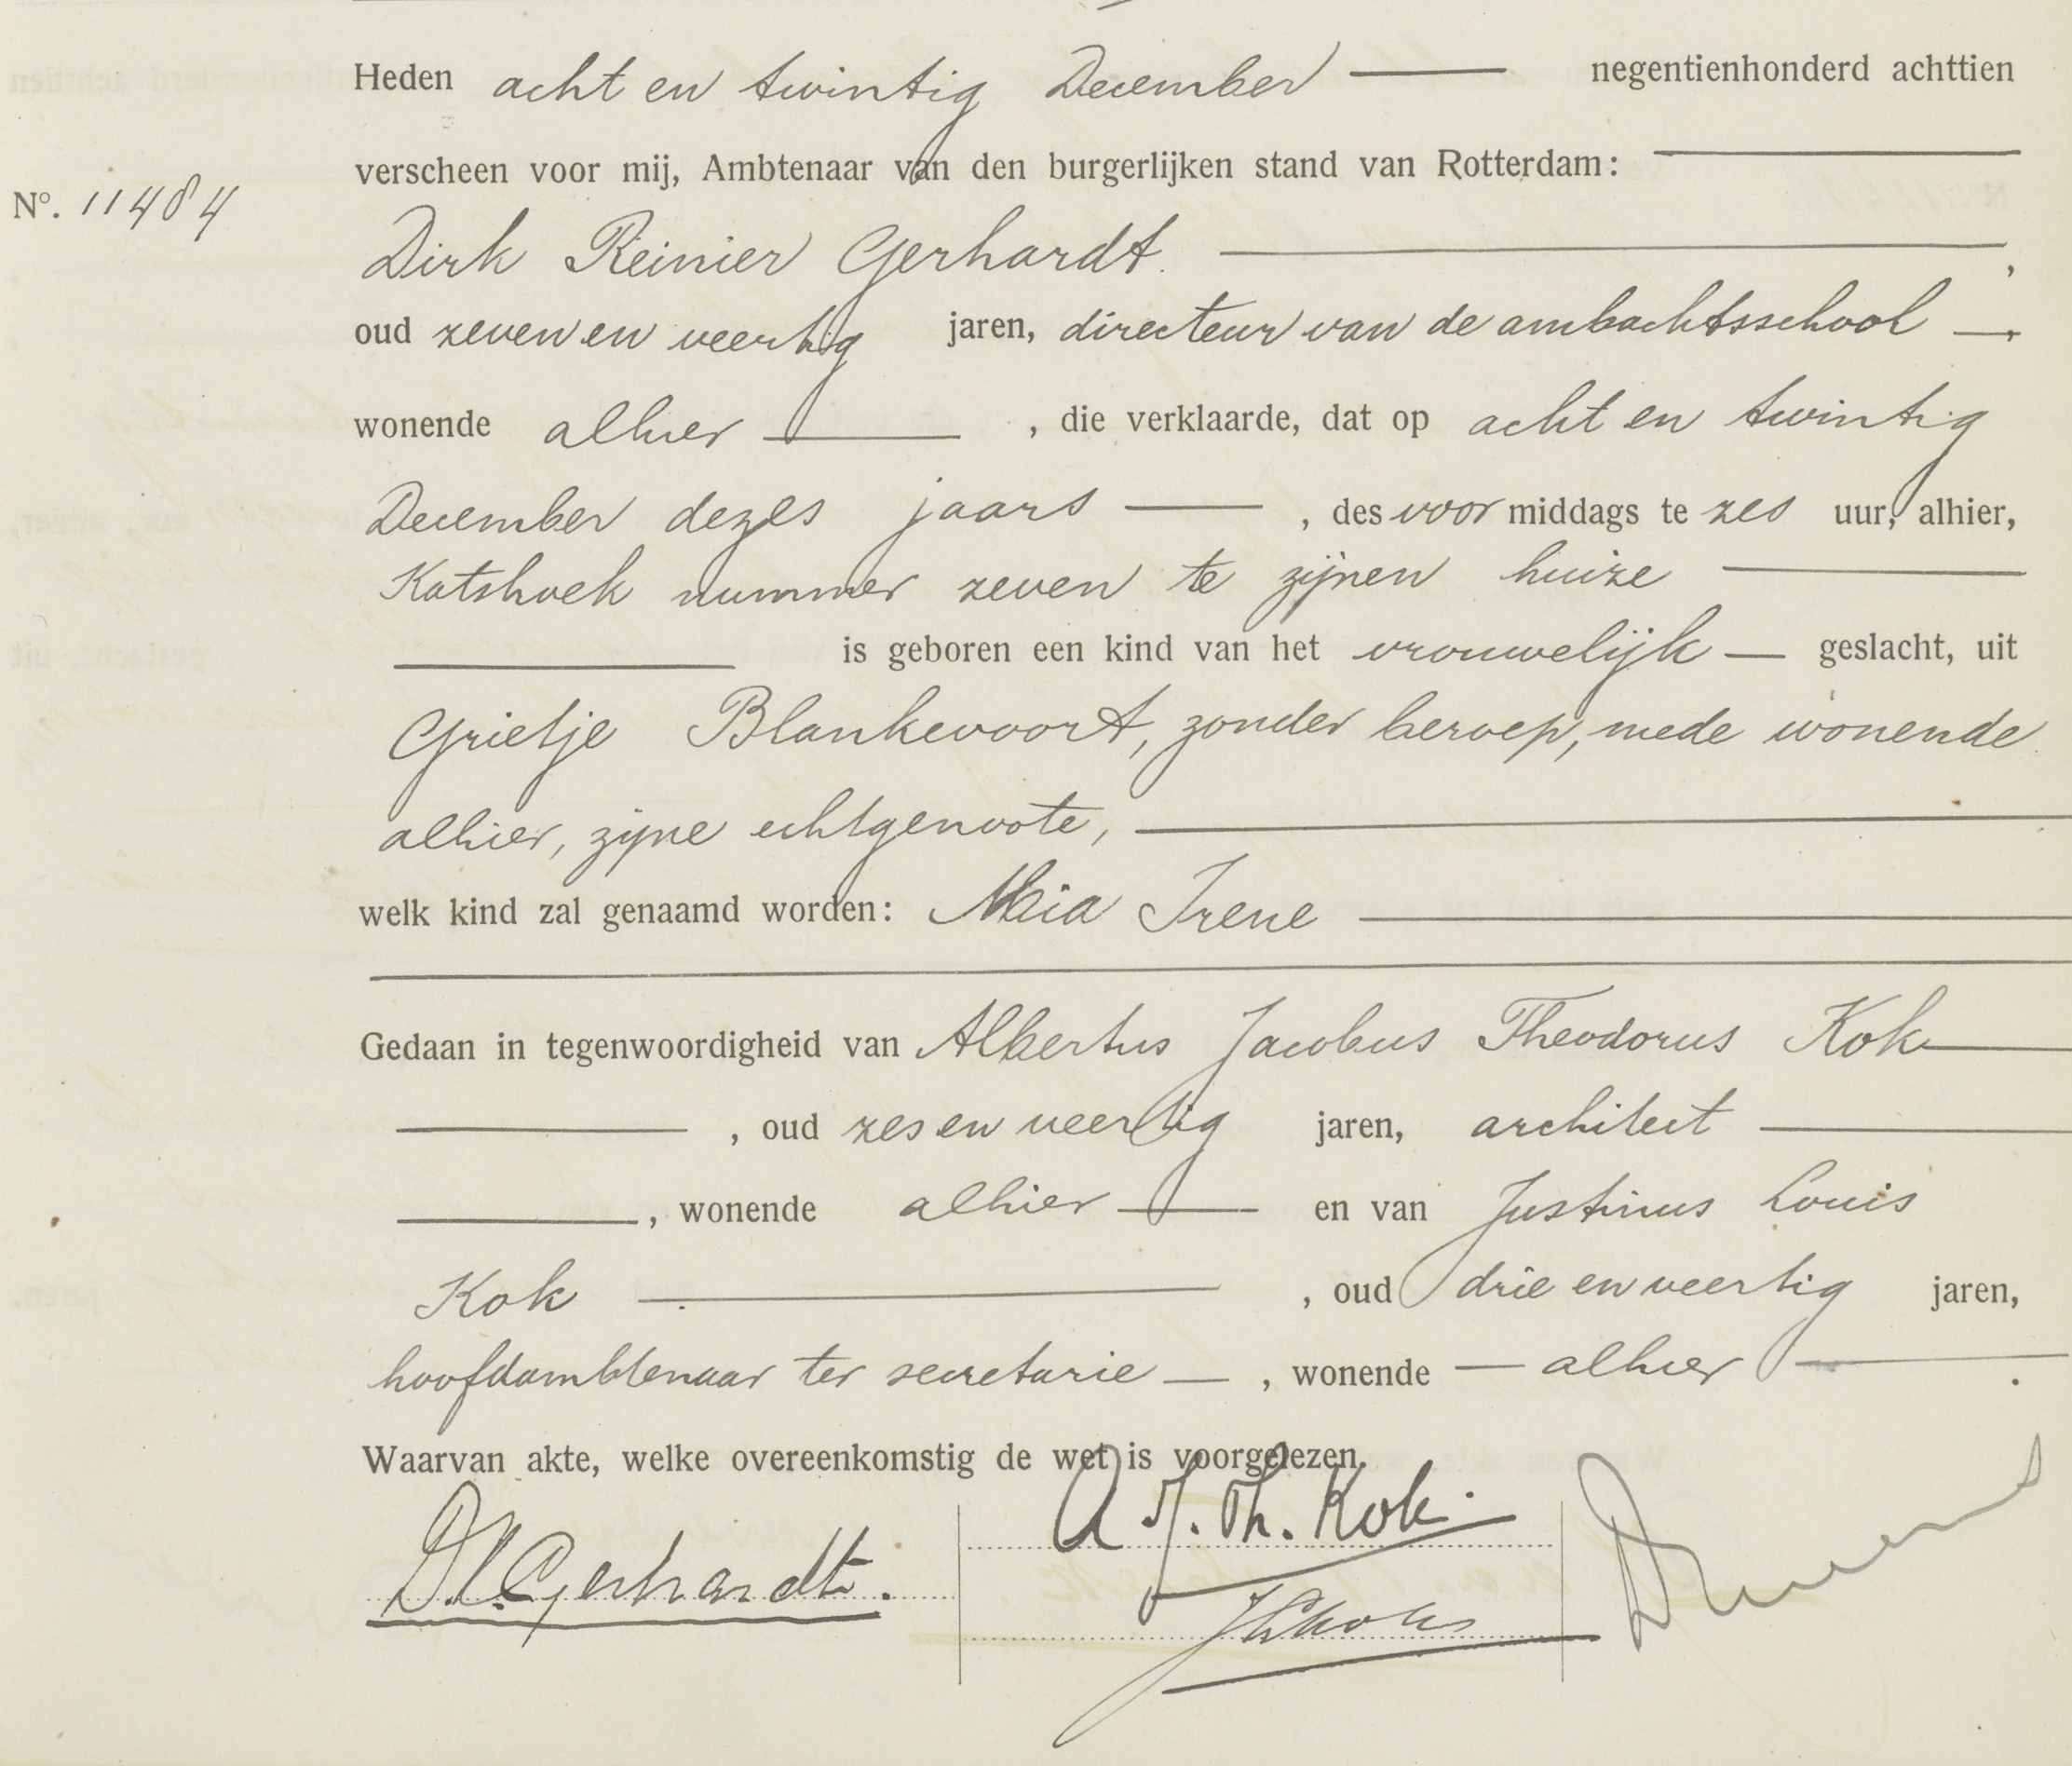 Heden acht en twintig December negentienhonderd achttien
verscheen voor mij, Ambtenaar van den burgerlijken stand van Rotterdam:
N°. 11484
Dirk Reinier Gerhardt,
oud zeven en veertig jaren, directeur van de ambachtsschool,
wonende alhier, die verklaarde, dat op acht en twintig
December dezes jaars, des voor middags te zes uur, alhier,
Katshoek nummer zeven te zijnen huize
is geboren een kind van het vrouwelijk geslacht, uit
Grietje Blankevoort, zonder beroep, mede wonende
alhier, zijne echtgenoote,
welk kind zal genaamd worden: Mia Irene
Gedaan in tegenwoordigheid van Albertus Jacobus Theodorus Kok
, oud zes en veertig jaren, architect
, wonende alhier en van Justinus Louis
Kok, oud drie en veertig jaren,
hoofdambtenaar ter secretarie, wonende alhier.
Waarvan akte, welke overeenkomstig de wet is voorgelezen.
A. J. Th. Kok.
D.R. Gerhardt.
JLKok